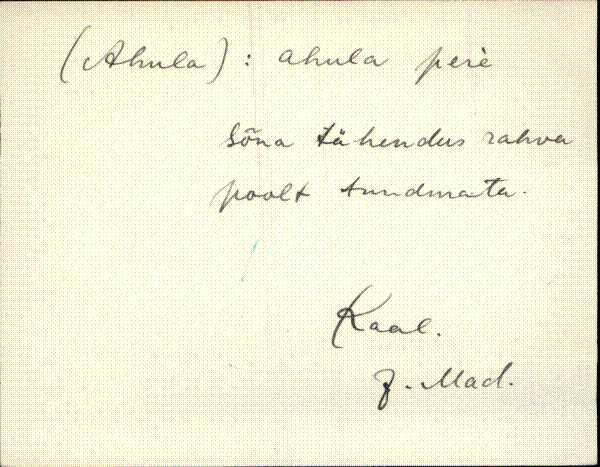 (Ahula) : ahula pere
Sõna tähendus rahva
poolt tundmata.
Kaal.
J. Mäd.